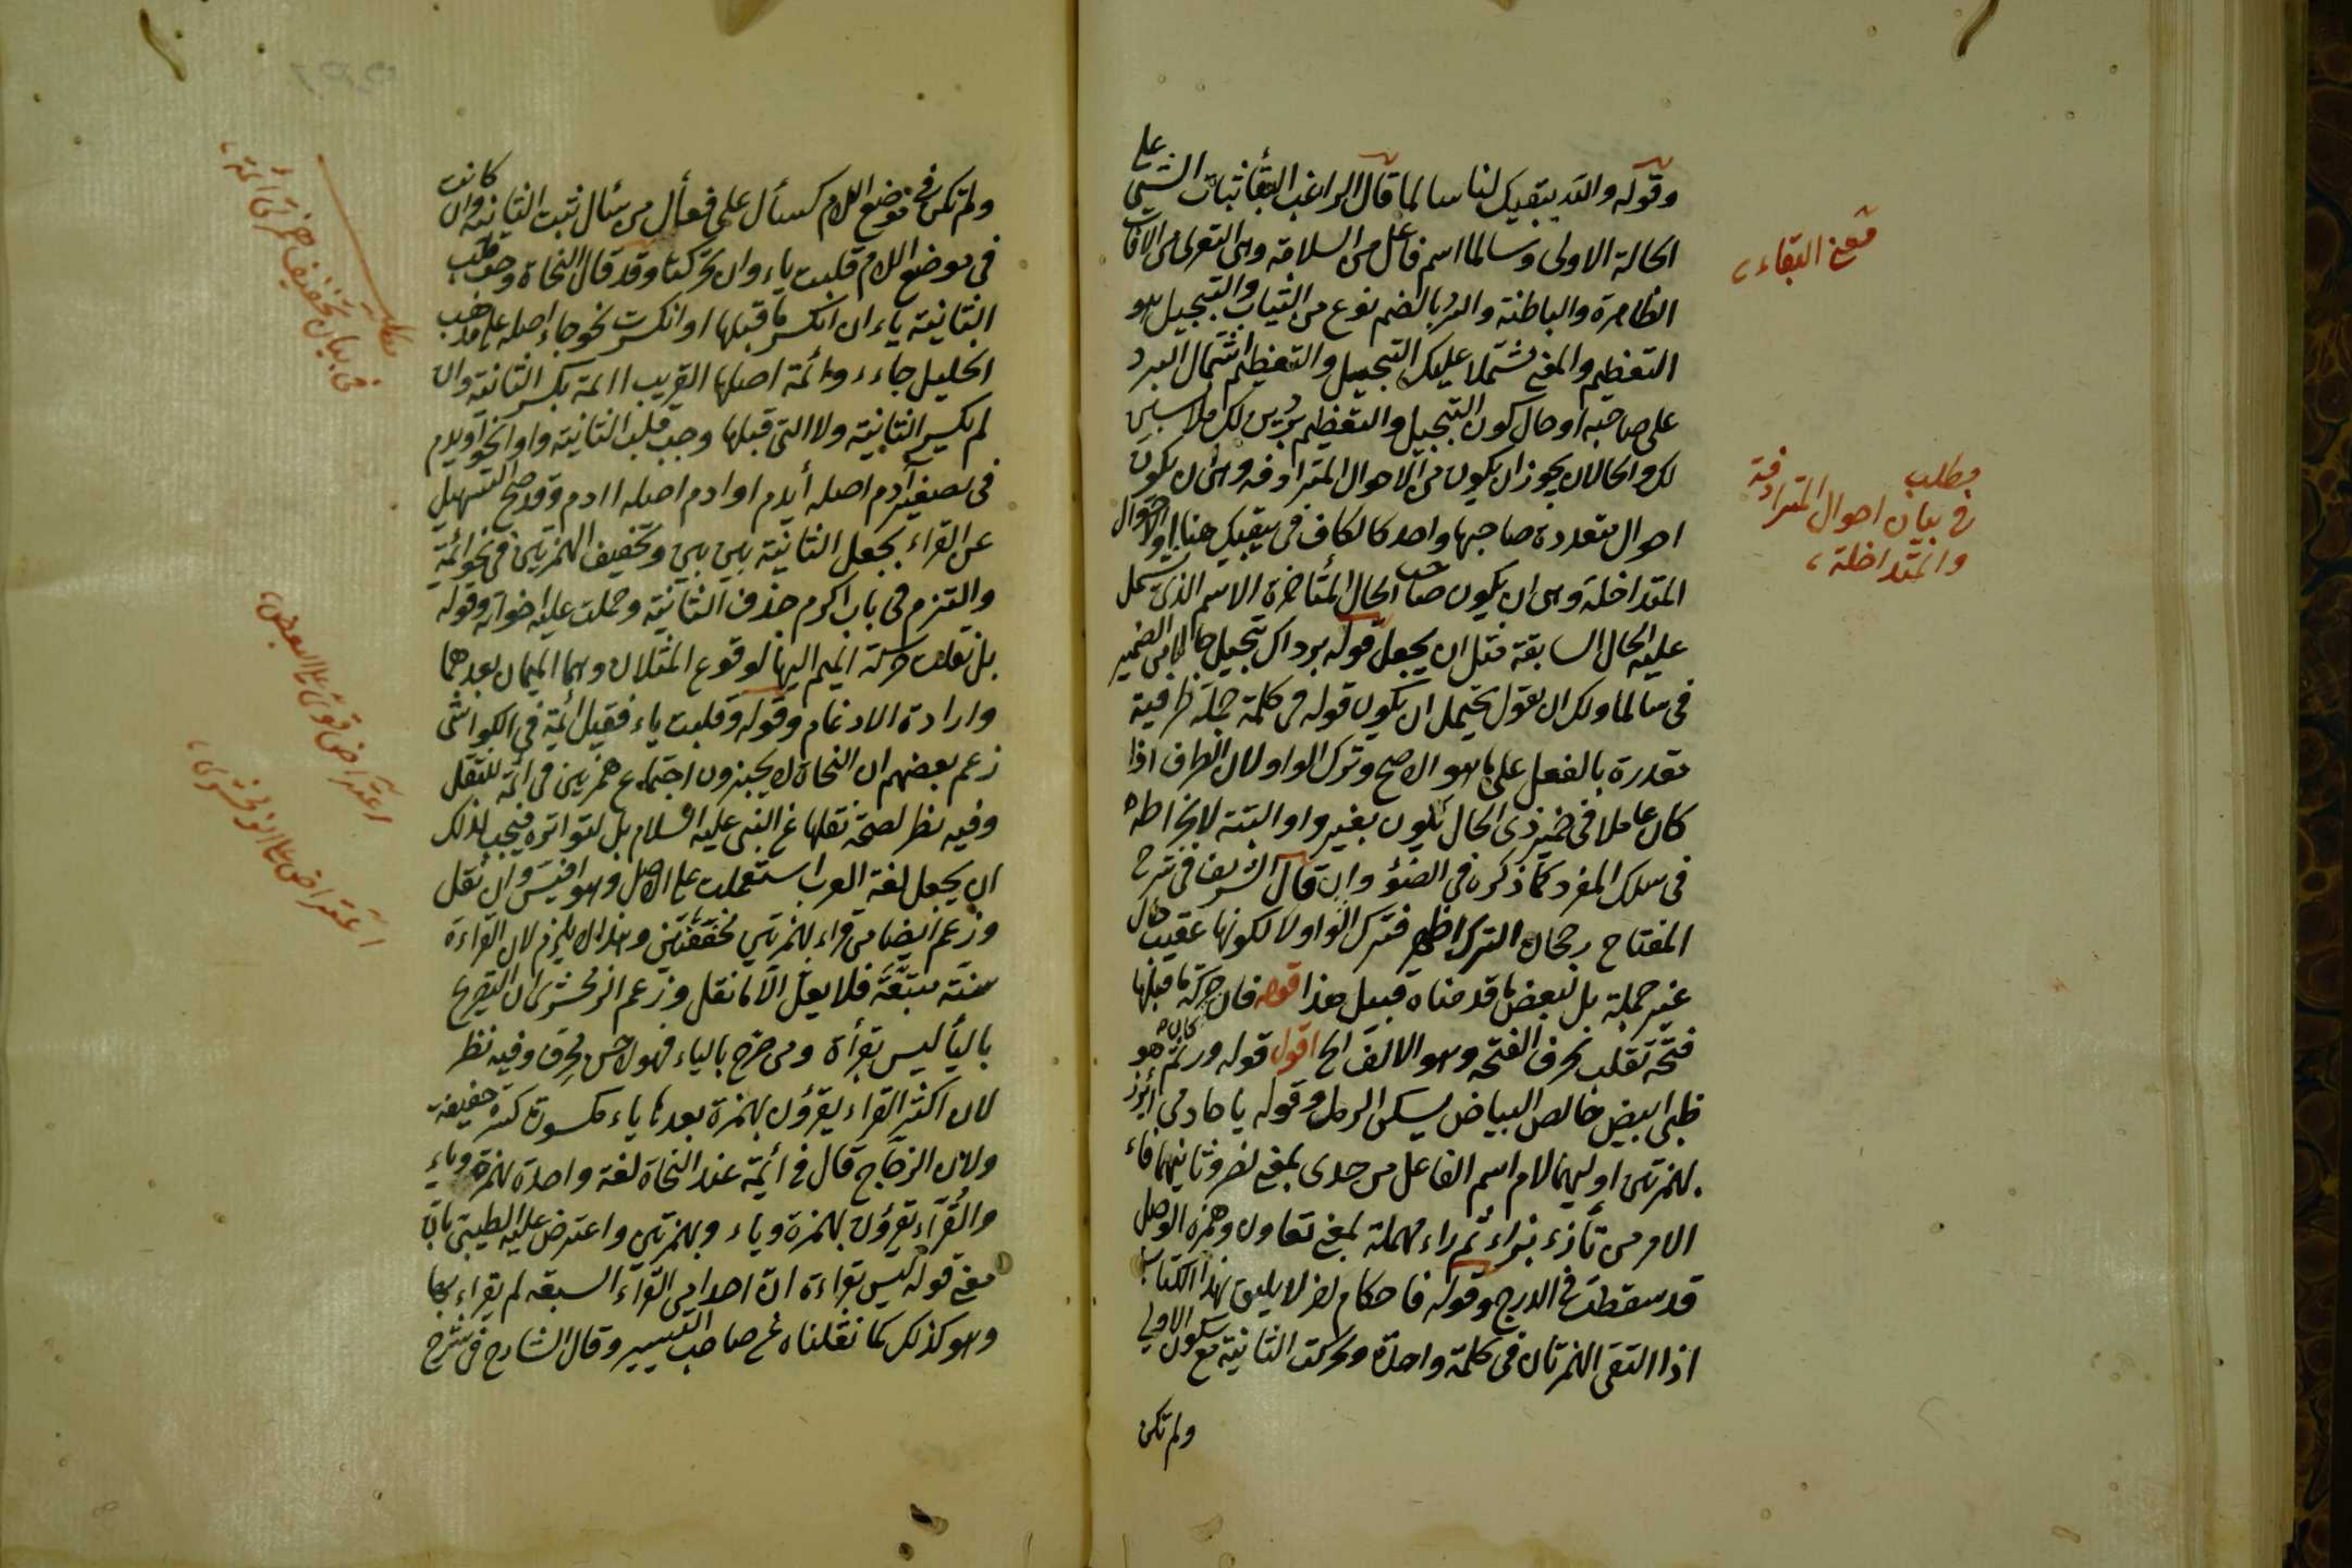 وقوله والله يبقيك لنا سالما قال الراغب البقأ ثبات الشئ على
الحالة الاولى وسالما اسم فاعل من السلامة وهى التعرى من الآفات
الظاهرة والباطنة والبرد بالضم نوع من الثياب والتبجيل هو
التعظيم والمعنى مشتملا عليك التبجيل والتعظيم اشتمال البرد
على صاحبه او حال كون التبجيل والتعظيم بردين لك ملابسين
لك والحالان يجوز ان يكون من الاحوال المترادفة وهى ان يكون
احوال متعددة صاحبها واحد كالكاف فى يبقيك هنا او الاحوال
المتداخلة وهى ان يكون صاحب الحال المتأخرة الاسم الذى يشتمل
عليه الحال السابقة مثل ان يجعل قوله برداك تبجيل حالا من الضمير
فى سالما ولك ان تقول يحتمل ان يكون قوله من كلمة جملة ظرفية
مقدرة بالفعل على ما هو الاصح وترك الواو لان الظرف اذا
كان عاملا فى ضمير ذى الحال يكون بغير واو البتة لانخراطه
فى سلك المفرد كما ذكره فى الضوء وان قال الشريف فى شرح
المفتاح رجحان الترك اظهر فترك الواو لا لكونها عقيب حال
غير جملة بل لبعض ما قدمناه قبيل هذا قوله فان حركة ما قبلها
فتحة تقلب بحرف الفتحة وهو الالف الخ اقول قوله ورئم هو
ظبى ابيض خالص البياض يسكن الرمل وقوله يا حادئ اؤزز كان
بهمزتين اوليهما لام اسم الفاعل من حدى بمعنى نصر وثانيهما فاء
الامر من تأزر بزاء ثم راء مهملة بمعنى تعاون وهمزة الوصل
قد سقطت فى الدرج وقوله فاحكام لا يليق بهذا الكتاب
اذا التقى الهمزتان فى كلمة واحدة وتحركت الثانية مع سكون الاولى
ولم تكن
معنى البقاء
مطلب
فى بيان احوال المترادفة
والمتداخلة
ولم تكن فى موضع اللام كسأل على فعأل من سئال ثبت الثانية وان كانت
فى موضع اللام قلبت ياء وان تحركتا وقد قال النحاة وجب قلب
الثانية ياء ان انكسر ما قبلها او انكسرت نحو جاء اصله على مذهب
الخليل جاءء وائمة اصلها القريب اامة بكسر الثانية وان
لم تكسر الثانية ولا التى قبلها وجب قلب الثانية واوا نحو اويدم
فى تصغير آدم اصله أيدم اوادم اصله اادم وقد صح التسهيل
عن القراء بجعل الثانية بين بين وتخفيف الهمزتين فى نحو ائمة
والتزم فى باب اكرم حذف الثانية وحملت عليه اخواته وقوله
بل نقلت حركة الميم اليها لوقوع المثلان وهما الميمان بعدهما
وارادة الادغام وقوله وقلبت ياء فقيل ائمة فى الكواشى
زعم بعضهم ان النحاة لا يجيزون اجتماع همزتين فى ائمة للثقل
وفيه نظر لصحة نقلها عن النبى عليه السلام بل لتواتره فيجب لذلك
ان يجعل لغة العرب استعملت على الاصل وهو اقيس وان ثقل
وزعم ايضا من قراء بهمزتين مخففتين وهذا لا يلزم لان القراءة
سنة متبعة فلا يعل الا ما نقل وزعم الزمخشرى ان التصريح
باليأ ليس بقرأة ومن صرح بالياء فهو لاحن محرف وفيه نظر
لان اكثر القراء يقرؤن بهمزة بعدها ياء مكسورة كسرة خفيفة
ولان الزجاج قال فى أئمة عند النحاة لغة واحدة بهمزة وياء
والقراء تقرؤن بهمزة وياء وبهمزتين واعترض عليه الطيبى بان
معنى قوله ليس بقراءة ان احدا من القراء السبعة لم يقراء بها
وهو كذلك كما نقلناه عن صاحب التيسير وقال الشارح فى شرح
مطلب
فى بيان تخفيف همزتى ائمة
اعتراض قوى على البعض
اعتراض على الزمخشرى